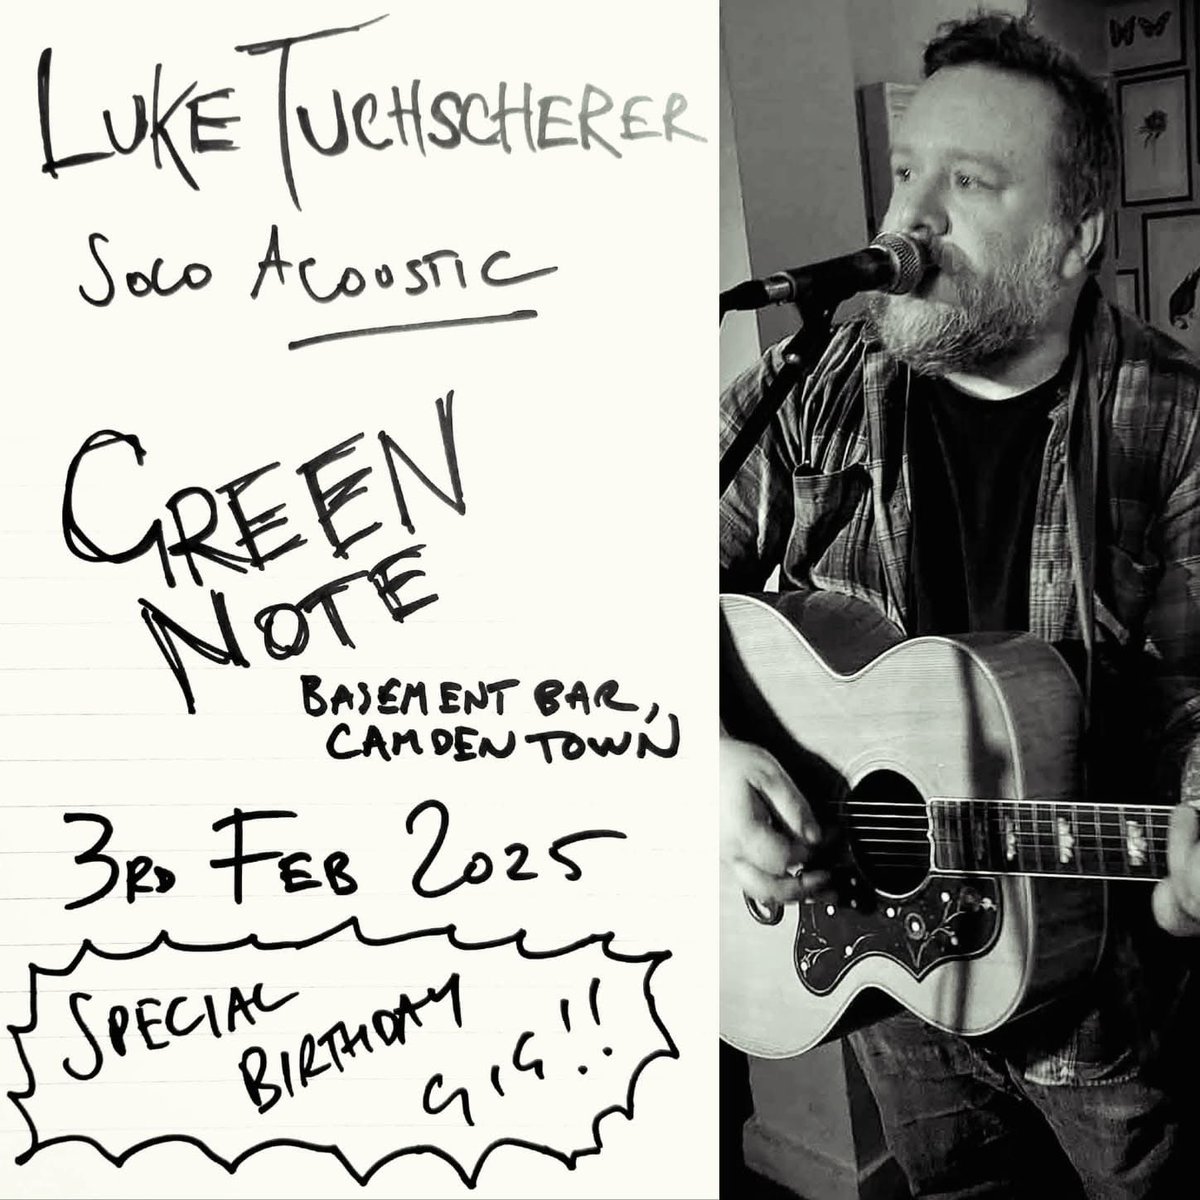 LUKE TUCHSCHERER
SOLO ACOUSTIC
GREEN
NOTE
BASEMENT BAR,
CAMDEN TOWN
3RD FEB 2025
SPECIAL
BIRTHDAY
GIG!!